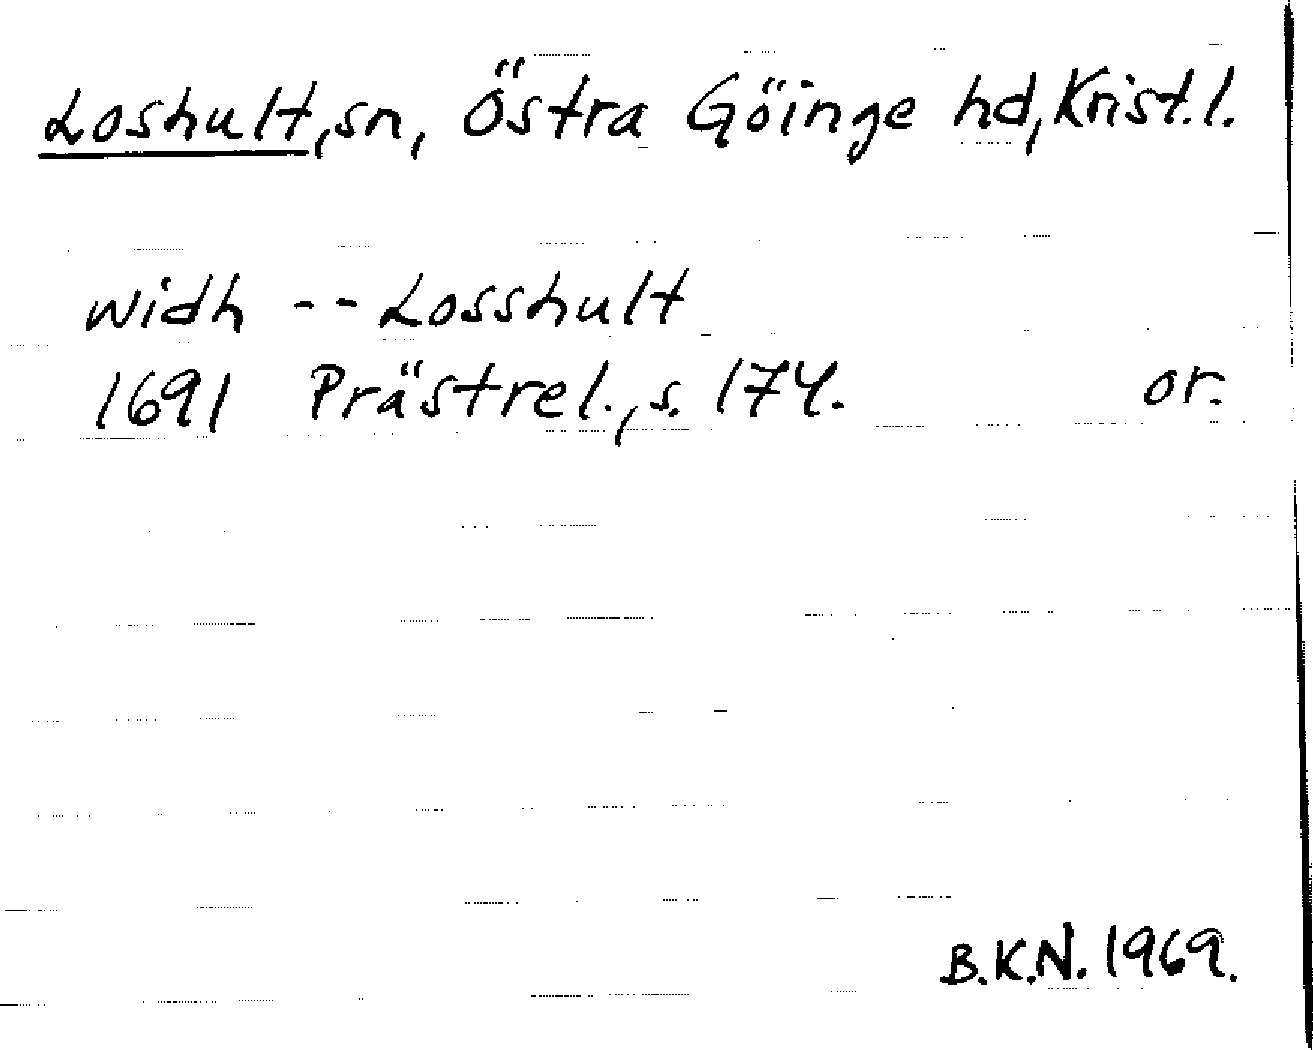 Loshult, sn, Östra Göinge hd, Krist. l.
widh -- Losshult
1691 Prästrel., s. 174. or.
B.K.N. 1969.